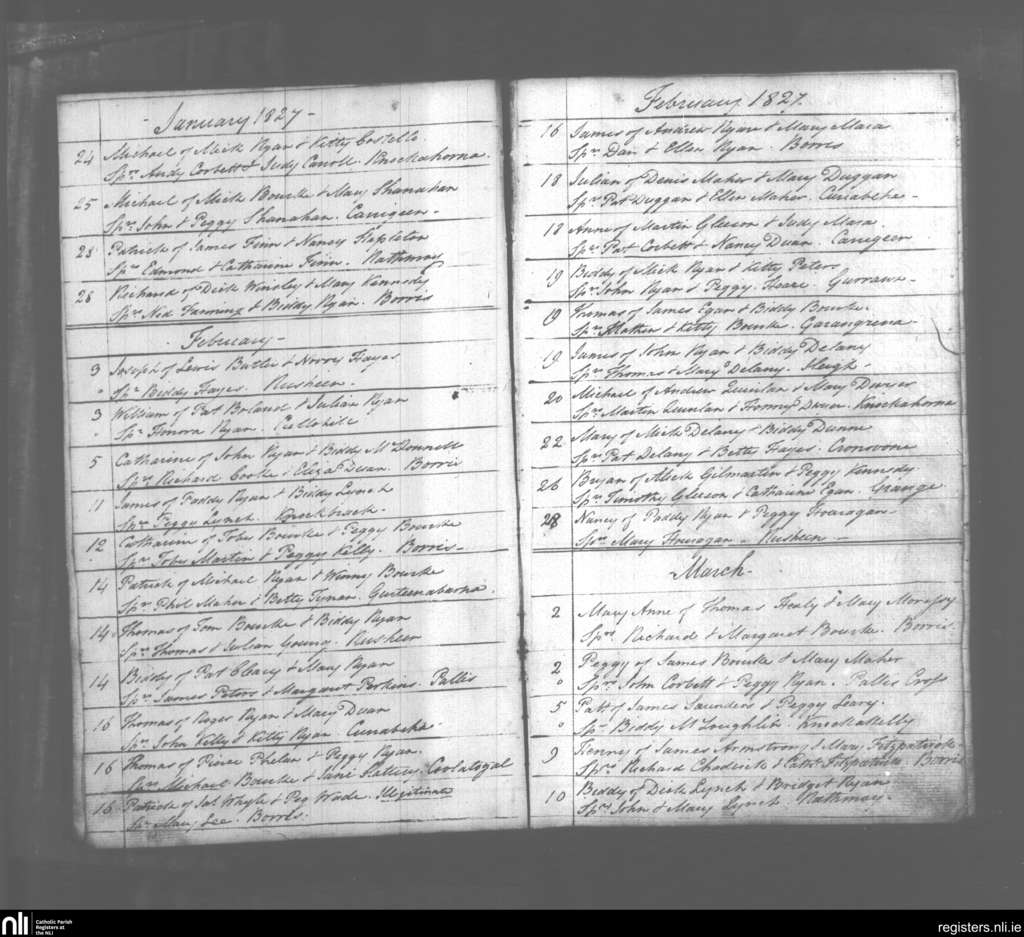 - January 1827 -
24 Michael of Mick Ryan & Kitty Costello.
Spr. Andy Corbett & Judy Carroll. Knockahorna.
25 Michael of Mick Bourke & Mary Shanahan
Spr. John & Peggy Shanahan. Carrigeen -
28 Patrick of James Finn & Nancy Stapleton
Spr. Edmond & Catharine Finn. Rathmoy
28 Richard of Dick Kennedy
Spr. Ned Fanning & Biddy Ryan. Borris
February -
3 Joseph of Lewis Butler & Norry Hayes
" Spr. Biddy Hayes. Rusheen.
3 William of Pat Boland & Julian Ryan
" Spr. Honora Ryan.
5 Catharine of John Ryan & Biddy McDonnell
Spr. Richard Cooke & Eliza Dwan. Borris
11 James of Paddy Ryan & Biddy Lynch
Spr. Peggy Lynch.
12 Catharine of Toby Bourke & Peggy Bourke
Spr. Toby Martin & Peggy Kelly. Borris -
14 Patrick of Michael Ryan & Winny Bourke
Spr. Phil Maher & Betty Tynan. Gurteenabarna.
14 Thomas of Tom Bourke & Biddy Ryan
Spr. Thomas & Julian Young. Rusheen
14 Biddy of Pat Cleary & Mary Ryan
Spr. James Peters & Margaret Perkins. Pallis
16 Thomas of Roger Ryan & Mary Dwan
Spr. John Kelly & Kitty Ryan. Curraheha.
16 Thomas of Pierce Phelan & Peggy Ryan.
Spr. Michael Bourke & Jane
16 Patrick of & Peg Wade. Illegitimate
Spr. Mary Lee. Borris.
February 1827.
16 James of Andrew Ryan & Mary Mara
Spr. Dan & Ellen Ryan. Borris
18 Julian of Denis Maher & Mary Duggan
Spr. Pat Duggan & Ellen Maher.
18 Anne of Martin Gleeson & Judy Mara
Spr. Pat Corbett & Nancy Dwan. Carrigeen
19 Biddy of Mick Ryan & Kitty Peters
Spr. John Ryan & Peggy Hoare. Gurrawn -
19 Thomas of James Egan & Biddy Bourke.
Spr. Mathew & Kitty Bourke. Garrangrena
19 James of John Ryan & Biddy Delany
Spr. Thomas & Mary Delany. Sleigh -
20 Michael of Andrew Quinlan & Mary Dwier
Spr. Martin Quinlan & Dwier. Knockahorna
22 Mary of Mick Delany & Biddy Dunne
Spr. Pat Delany & Betty Hayes. Cronovone
26 Bryan of Mick Gilmartin & Peggy Kennedy.
Spr. Timothy Gleeson & Catharine Egan. Grange
28 Nancy of Paddy Ryan & Peggy Houragan -
Spr. Mary Houragan - Rusheen -
March -
2 Mary Anne of Thomas Healy & Mary Morissy
Spr. Richard & Margaret Bourke. Borris.
2 Peggy of James Bourke & Mary Maher
" Spr. John Corbett & Peggy Ryan. Pallis Cross
5 Patt of James Saunders & Peggy Leary.
" Spr. Biddy McLoughlin. Knockakelly
9 Henry of James Armstrong & Mary Fitzpatrick.
Spr. Richard Chadwick & Cathe. Fitzpatrick Borris
10 Biddy of Dick Lynch & Bridget Ryan
Spr. John & Mary Lynch. Rathmoy.
nli Catholic Parish
Registers at
the NLI
registers.nli.ie